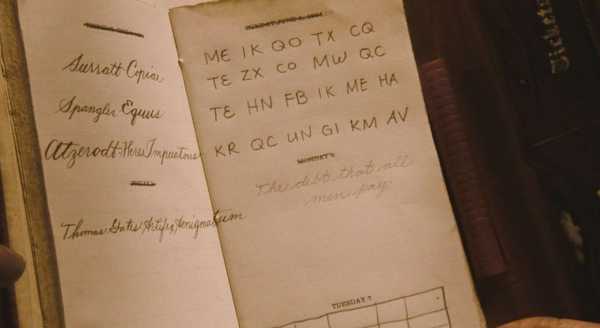 Surratt Copias
Spangler Equus
Atzerodt
Thomas Gates Artifex Aenigmatum
ME IK QO TX CQ
TE ZX CO MW QC
TE HN FB IK ME HA
KR QC UN GI KM AV
MONDAY
The debt that all
men pay
TUESDAY 7
Tickets